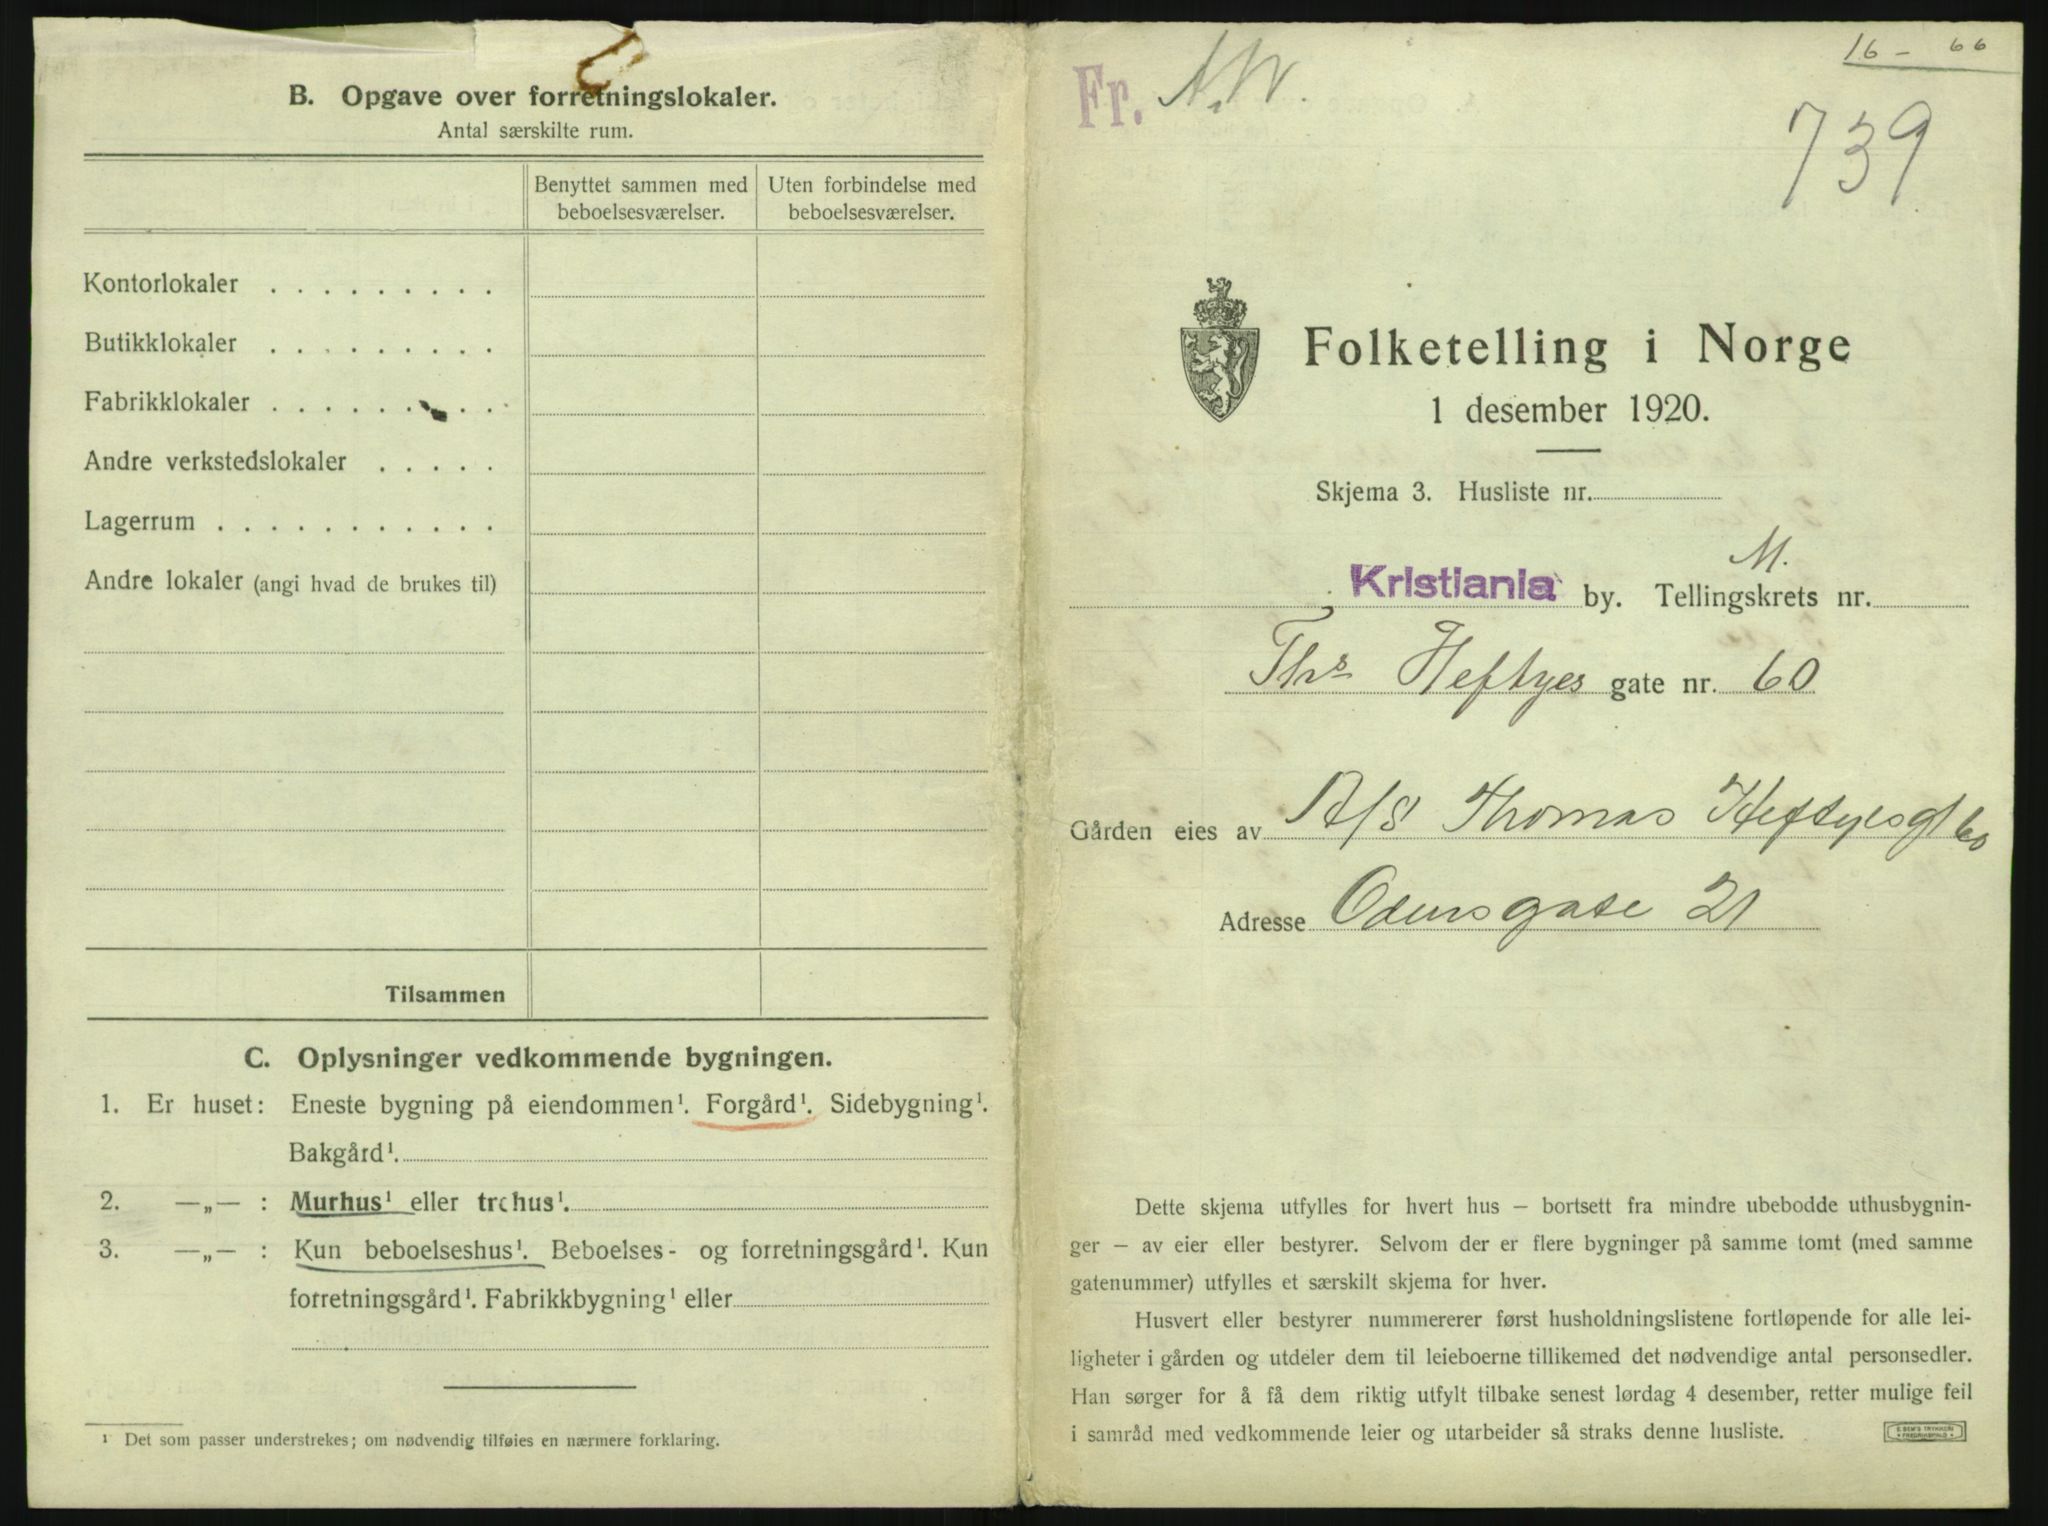 B. Opgave over forretningslokaler.
Antal særskilte rum.
Benyttet sammen med beboelsesværelser.
Uten forbindelse med beboelsesværelser.
Kontorlokaler . . . . . . . . .
Butikklokaler . . . . . . . . .
Fabrikklokaler . . . . . . . . .
Andre verkstedslokaler . . . . .
Lagerrum . . . . . . . . . . .
Andre lokaler (angi hvad de brukes til)
Tilsammen
C. Oplysninger vedkommende bygningen.
1. Er huset: Eneste bygning på eiendommen¹. Forgård¹. Sidebygning¹.
Bakgård¹.
2. —„— : Murhus¹ eller trehus¹.
3. —„— : Kun beboelseshus¹. Beboelses- og forretningsgård¹. Kun
forretningsgård¹. Fabrikkbygning¹ eller
¹ Det som passer understrekes; om nødvendig tilføies en nærmere forklaring.
16 - 66
Fr. A.W.
739
Folketelling i Norge
1 desember 1920.
Skjema 3. Husliste nr.
M.
Kristiania by. Tellingskrets nr.
Ths Heftyes gate nr. 60
Gården eies av A/S Thomas Heftyesgt 60
Adresse Odinsgate 21
Dette skjema utfylles for hvert hus – bortsett fra mindre ubebodde uthusbygnin-
ger – av eier eller bestyrer. Selvom der er flere bygninger på samme tomt (med samme
gatenummer) utfylles et særskilt skjema for hver.
Husvert eller bestyrer nummererer først husholdningslistene fortløpende for alle lei-
ligheter i gården og utdeler dem til leieboerne tillikemed det nødvendige antal personsedler.
Han sørger for å få dem riktig utfylt tilbake senest lørdag 4 desember, retter mulige feil
i samråd med vedkommende leier og utarbeider så straks denne husliste.
E. SEM'S TRYKKERI
FREDRIKSHALD